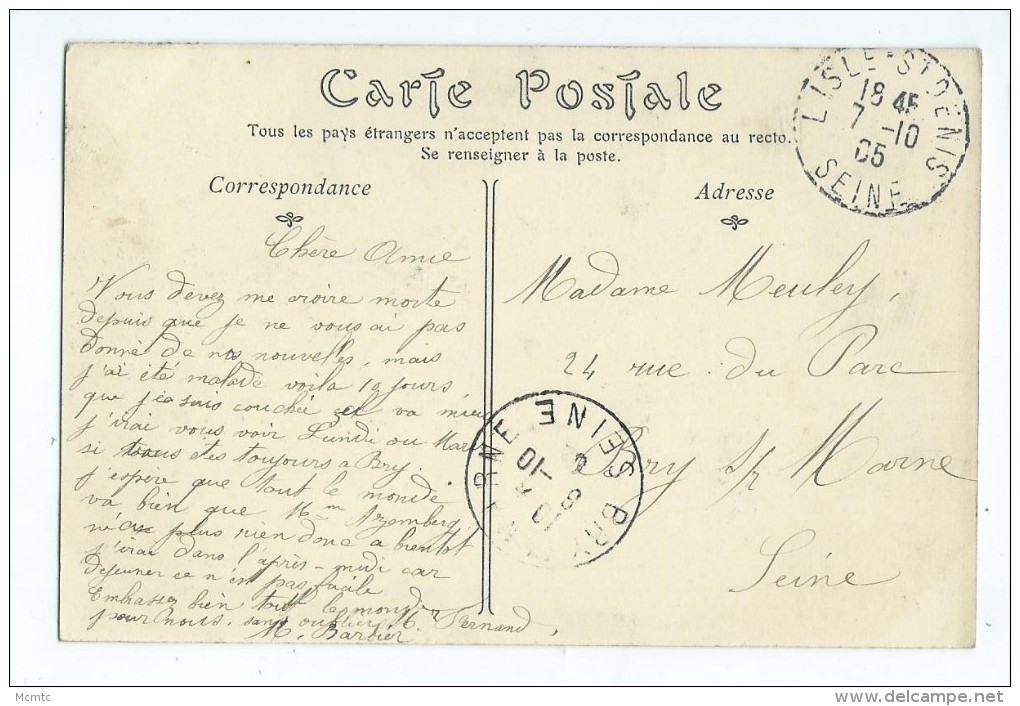 Carte Postale
Tous les pays étrangers n'acceptent pas la correspondance au recto.
Se renseigner à la poste.
Correspondance
Chère Amie
Vous devez me croire morte
depuis que je ne vous ai pas
donné de nos nouvelles, mais
j'ai été malade voila 10 jours
que je suis couchée cela va mieux
j'irai vous voir Lundi ou Mardi
si vous êtes toujours a Bry.
j'espère que tout le monde
va bien que Mme
n'a plus rien donc a bientot
j'irai dans l'après-midi car
dejeuner ce n'est pas facile
Embassez bien tout le monde
pour nous, sans oublier M. Fernand,
M. Barbier
Adresse
Madame Meuley,
24 rue du Parc
Bry s/ Marne
Seine
L'ISLE-ST DENIS
18 45
7 -10
05
SEINE
BRY MARNE SEINE
8 -10
Mcmtc
delcampe.net